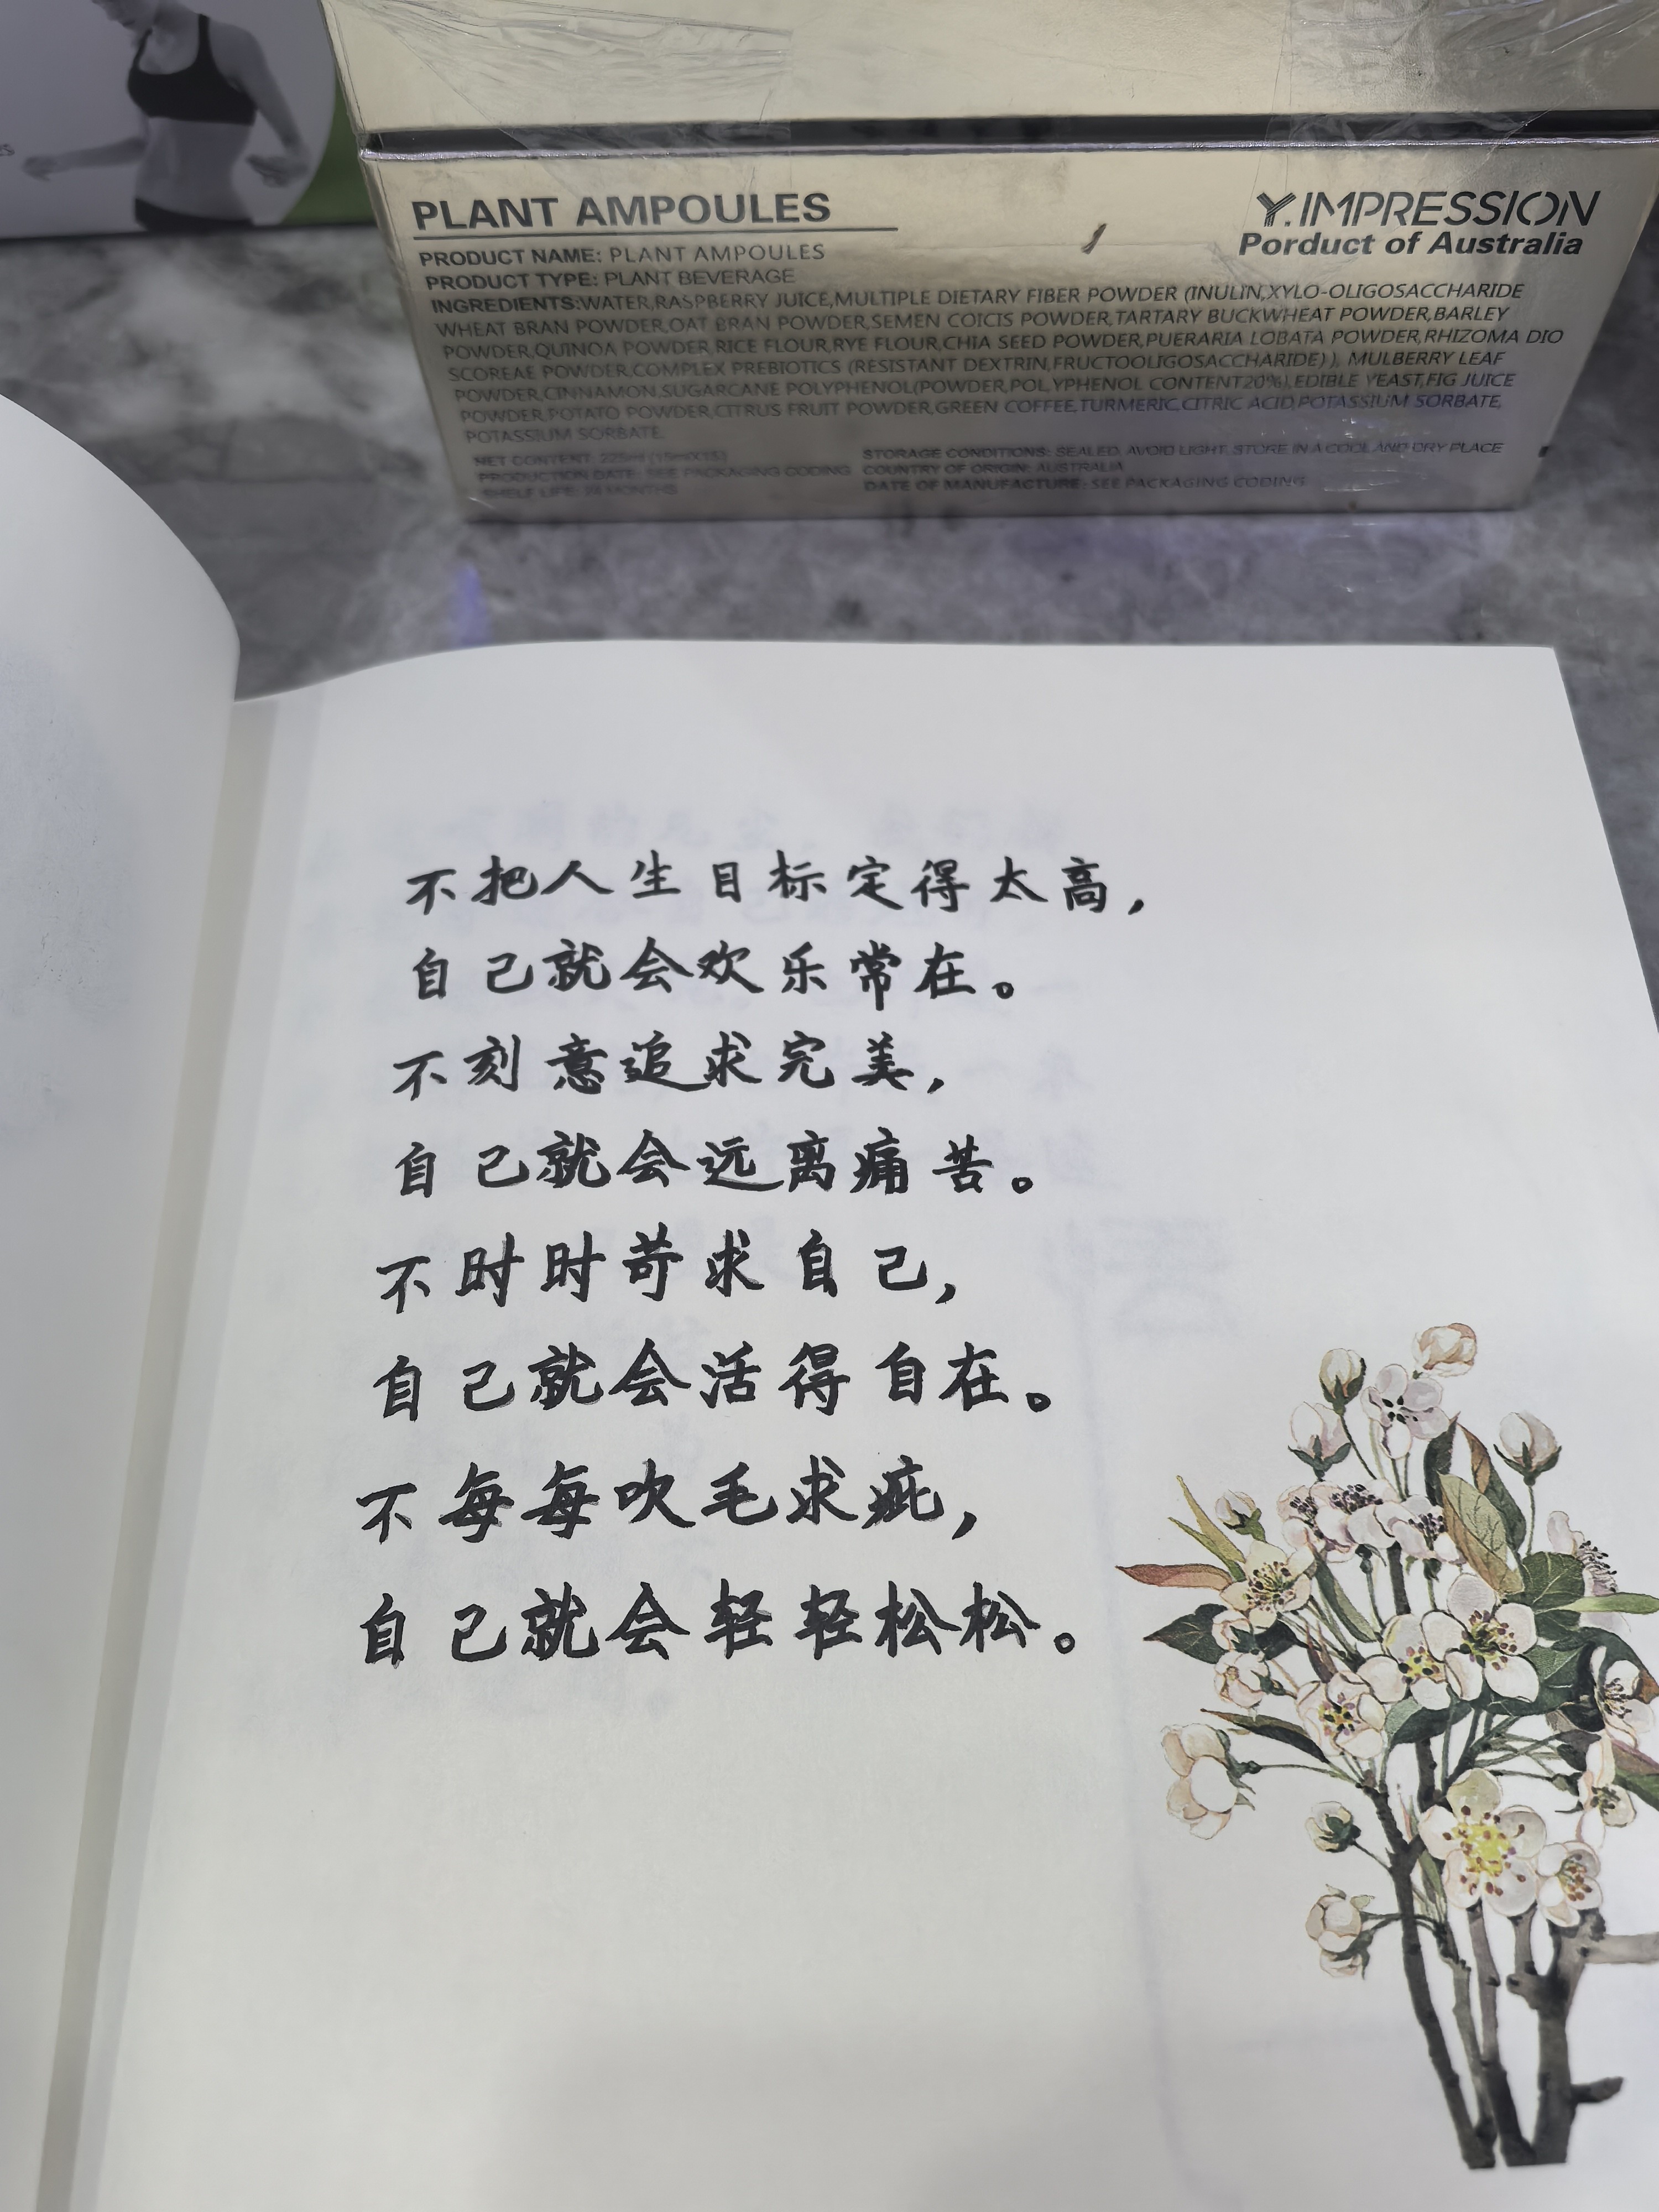 PLANT AMPOULES
Y.IMPRESSION
Porduct of Australia
PRODUCT NAME: PLANT AMPOULES
PRODUCT TYPE: PLANT BEVERAGE
INGREDIENTS:WATER,RASPBERRY JUICE,MULTIPLE DIETARY FIBER POWDER (INULIN,XYLO-OLIGOSACCHARIDE
WHEAT BRAN POWDER,OAT BRAN POWDER,SEMEN COICIS POWDER,TARTARY BUCKWHEAT POWDER,BARLEY
POWDER,QUINOA POWDER,RICE FLOUR,RYE FLOUR,CHIA SEED POWDER,PUERARIA LOBATA POWDER,RHIZOMA DIO
SCOREAE POWDER,COMPLEX PREBIOTICS (RESISTANT DEXTRIN,FRUCTOOLIGOSACCHARIDE) ), MULBERRY LEAF
POWDER,CINNAMON,SUGARCANE POLYPHENOL(POWDER,POLYPHENOL CONTENT20%),EDIBLE YEAST,FIG JUICE
POWDER,POTATO POWDER,CITRUS FRUIT POWDER,GREEN COFFEE,TURMERIC,CITRIC ACID,POTASSIUM SORBATE,
POTASSIUM SORBATE.
NET CONTENT: 225ml (15mlX15)
PRODUCTION DATE: SEE PACKAGING CODING
SHELF LIFE: 24 MONTHS
STORAGE CONDITIONS: SEALED, AVOID LIGHT, STORE IN A COOL AND DRY PLACE
COUNTRY OF ORIGIN: AUSTRALIA
DATE OF MANUFACTURE: SEE PACKAGING CODING
不把人生目标定得太高，
自己就会欢乐常在。
不刻意追求完美，
自己就会远离痛苦。
不时时苛求自己，
自己就会活得自在。
不每每吹毛求疵，
自己就会轻轻松松。